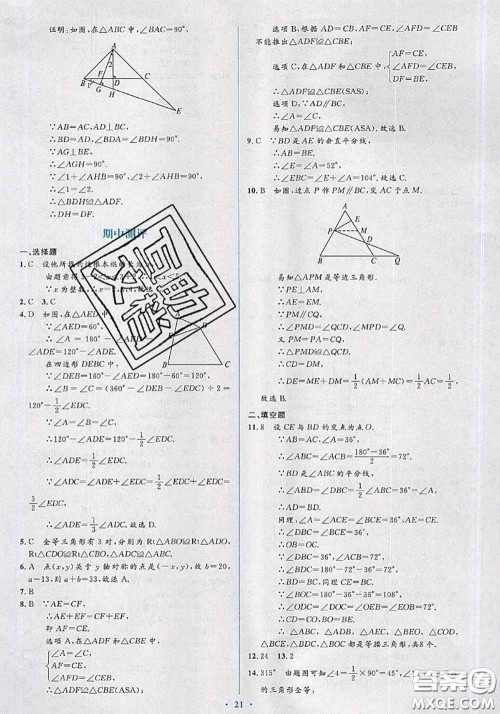 证明:如图,在△ABC中,∠BAC=90°,
A
2
B
F
G
D
C
H
E
∵AB=AC,AD⊥BC,
∴BD=AD,∠BDH=∠ADG=90°.
∵AG⊥BE,
∴∠AGH=90°.
∵∠1+∠AHG=∠2+∠AHG=90°.
∴∠1=∠2.
∴△BDH≌△ADF.
∴DH=DF.
期中测评
一、选择题
1.C
2.C 3.C
4.D 如图,在△AED中,
∵∠AED=60°,
∴∠A=180°-
120°-∠ADE.
在四边形DEBC中,
∵∠DEB=180°-∠AED=180°-60°=120°,
∴∠B=∠C=(360°-∠DEB-∠EDC)÷2=
120°-1/2∠EDC.
∴120°-∠ADE=120°-1/2∠EDC.
∴∠ADE=1/2∠EDC.
∵∠ADC=∠ADE+∠EDC=1/2∠EDC+∠EDC=
3/2∠EDC,
∴∠ADE=1/3∠ADC.故选D.
5.C 全等三角形有3对,分别为Rt△ABO≌Rt△ADO,
Rt△CDO≌Rt△CBO,△ABC≌△ADC.故选C.
6.A 点(x,y)关于y轴对称的点是(-x,y),故b=20,
a=13,则a+b=33.故选A.
7.B
8.B ∵AE=CF,
∴AE+EF=CF+EF,
即AF=CE.
选项A,在△ADF和△CBE中,
∠A=∠C,
AF=CE,
∠AFD=∠CEB,
∴△ADF≌△CBE(ASA);
选项B,根据AD=CB,AF=CE,∠AFD=∠CEB
不能推出△ADF≌△CBE;
选项C,在△ADF和△CBE中,
AF=CE,
∠AFD=∠CEB,
DF=BE,
∴△ADF≌△CBE(SAS);
选项D,∵AD∥BC,
∴∠A=∠C.
易知△ADF≌△CBE(ASA).故选B.
9.C ∵BD是AE的垂直平分线,
∴AB=BE.
∴∠E=∠A=52°.
10.B 如图,过点P作PM∥BC,交AC于点M.
A
E
P
M
D
B
C
Q
易知△APM是等边三角形.
∵PE⊥AM,
∵PM∥CQ,
∴∠PMD=∠QCD,∠MPD=∠Q.
又PM=PA=CQ,
∴△PMD≌△QCD.
∴CD=DM.
∴DE=ME+DM=1/2(AM+MC)=1/2AC=1/2.
故选B.
二、填空题
11.8 设CE与BD的交点为点O.
∵AB=AC,∠A=36°,
∴∠ABC=∠ACB=180°-36°/2=72°.
∵BD是∠ABC的平分线,
∴∠ABD=∠DBC=1/2∠ABC=36°=∠A.
∴AD=BD.
同理,∠A=∠ACE=∠BCE=36°,AE=CE.
∵∠DBC=36°,∠ACB=72°,
∴∠BDC=180°-72°-36°=72°.
同理∠COD=72°.
∴∠ODC=∠DOC=∠OEB=∠EOB=72°.
∴△ABC,△ADB,△AEC,△BEO,△COD,
△BCE,△BDC,△BOC都是等腰三角形,共8个.
12.24 13.2
14.315° 由题图可知∠4=1/2×90°=45°,∠
的三角形全等,
21